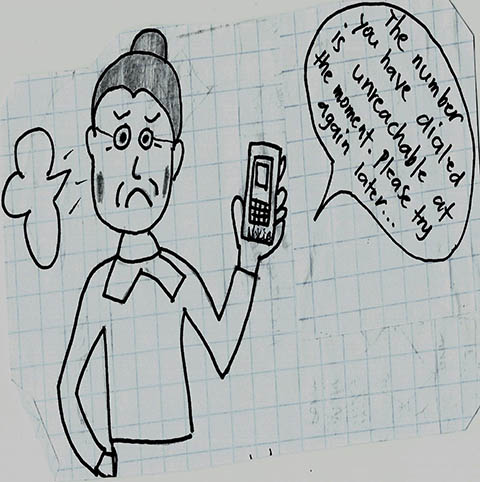 The number
you have dialed
is unreachable at
the moment. Please try
again later...